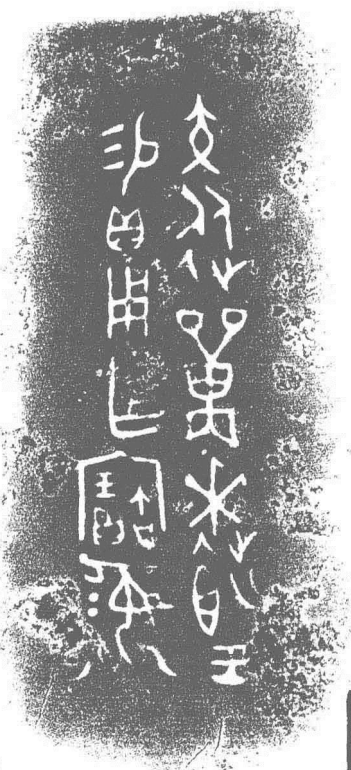 交從嘼逨即王
易貝用乍寶彝